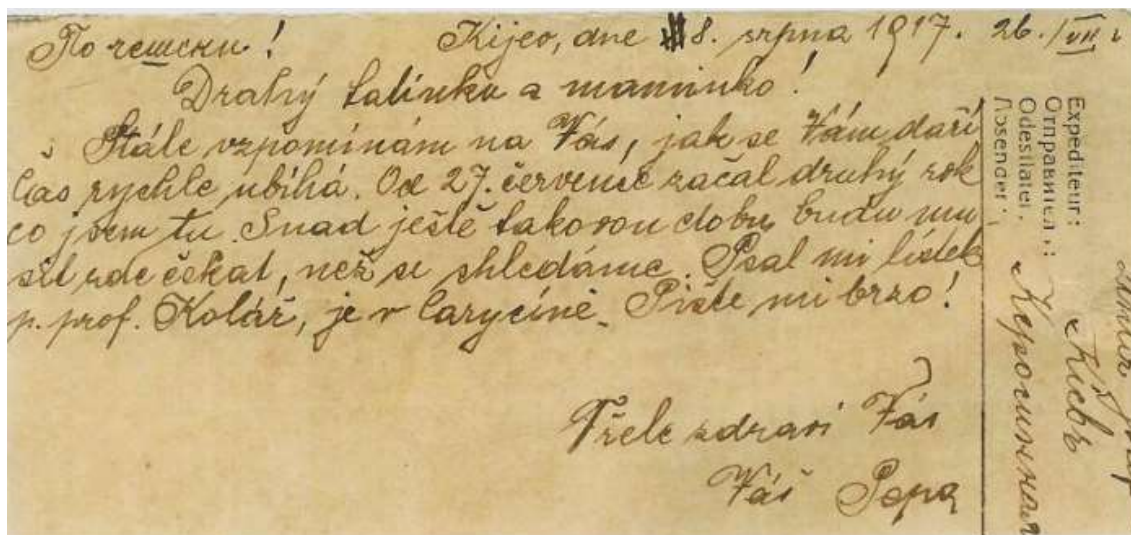 По чешски! Kijev, dne 8. srpna 1917. 26./VII
Drahý tatínku a maminko!
Stále vzpomínám na Vás, jak se Vám daří
čas rychle ubíhá. Od 27. července začal druhý rok
co jsem tu. Snad ještě takovou dobu budu mu
set zde čekat, než se shledáme. Psal mi lístek
p. prof. Kolář, je v Carycíně. Pište mi brzo!
Vřele zdraví Vás
Váš Pepa
Expediteur:
Отправитель:
Odesílatel:
Absender:
Кіевъ
Керосинная